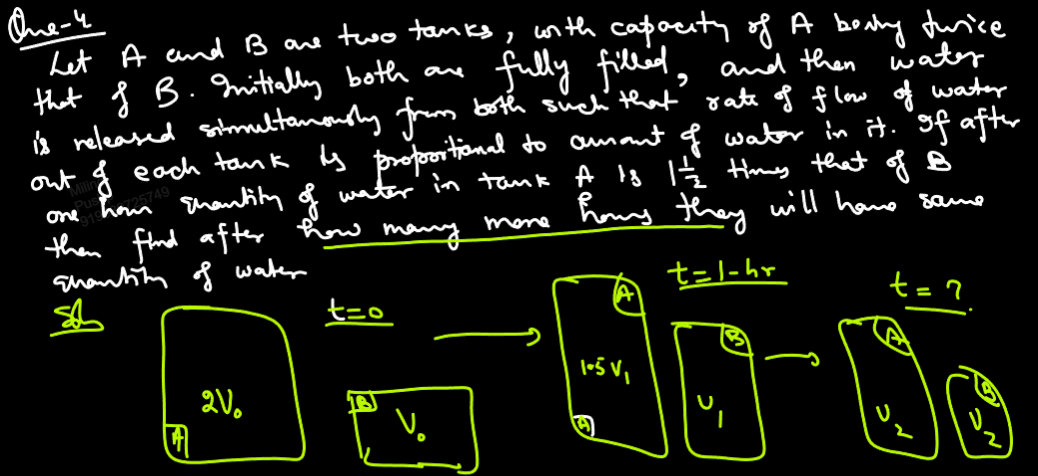 Que-4
Let A and B are two tanks, with capacity of A being twice
that of B. Initially both are fully filled, and then water
is released simultaneously from both such that rate of flow of water
out of each tank is proportional to amount of water in it. If after
one hour quantity of water in tank A is 1 1/2 times that of B
then find after how many more hours they will have same
quantity of water
Sol
t=0
t=1-hr
t=?
A
2V₀
B
V₀
A
1.5V₁
A
B
V₁
A
V₂
B
V₂